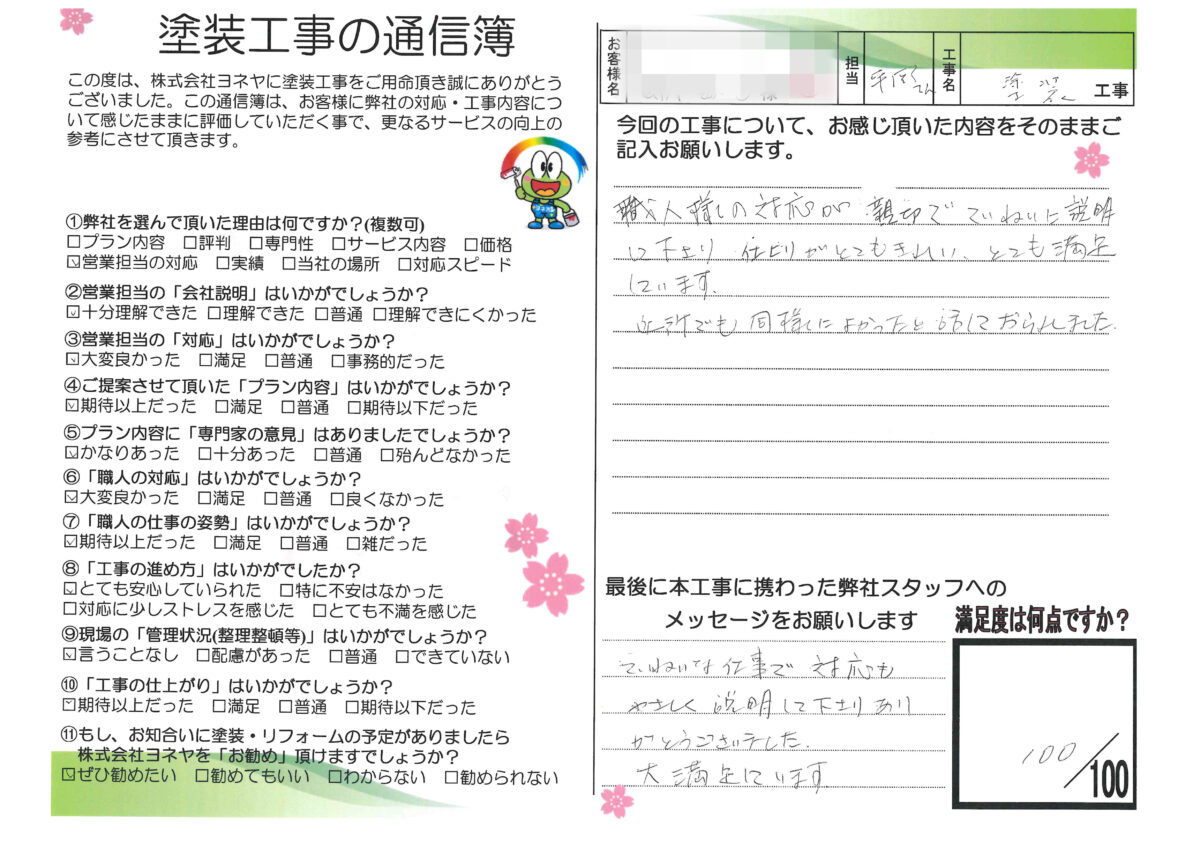 塗装工事の通信簿
この度は、株式会社ヨネヤに塗装工事をご用命頂き誠にありがとう
ございました。この通信簿は、お客様に弊社の対応・工事内容につ
いて感じたままに評価していただく事で、更なるサービスの向上の
参考にさせて頂きます。
①弊社を選んで頂いた理由は何ですか？(複数可)
□プラン内容 □評判 □専門性 □サービス内容 □価格
☑営業担当の対応 □実績 □当社の場所 □対応スピード
②営業担当の「会社説明」はいかがでしょうか？
☑十分理解できた □理解できた □普通 □理解できにくかった
③営業担当の「対応」はいかがでしょうか？
☑大変良かった □満足 □普通 □事務的だった
④ご提案させて頂いた「プラン内容」はいかがでしょうか？
☑期待以上だった □満足 □普通 □期待以下だった
⑤プラン内容に「専門家の意見」はありましたでしょうか？
☑かなりあった □十分あった □普通 □殆んどなかった
⑥「職人の対応」はいかがでしょうか？
☑大変良かった □満足 □普通 □良くなかった
⑦「職人の仕事の姿勢」はいかがでしょうか？
☑期待以上だった □満足 □普通 □雑だった
⑧「工事の進め方」はいかがでしたか？
☑とても安心していられた □特に不安はなかった
□対応に少しストレスを感じた □とても不満を感じた
⑨現場の「管理状況(整理整頓等)」はいかがでしょうか？
☑言うことなし □配慮があった □普通 □できていない
⑩「工事の仕上がり」はいかがでしょうか？
☑期待以上だった □満足 □普通 □期待以下だった
⑪もし、お知合いに塗装・リフォームの予定がありましたら
株式会社ヨネヤを「お勧め」頂けますでしょうか？
☑ぜひ勧めたい □勧めてもいい □わからない □勧められない
お客様名 担当 工事名 塗装 工事
今回の工事について、お感じ頂いた内容をそのままご
記入お願いします。
職人様の対応が 親切で ていねいに説明
して下さり 仕上りがとてもきれい、とても満足
しています。
近所でも 同様によかったと 話しておられました。
最後に本工事に携わった弊社スタッフへの
メッセージをお願いします
ていねいな仕事で 対応も
やさしく 説明して下さり あり
がとうございました。
大満足しています。
満足度は何点ですか？
100/100